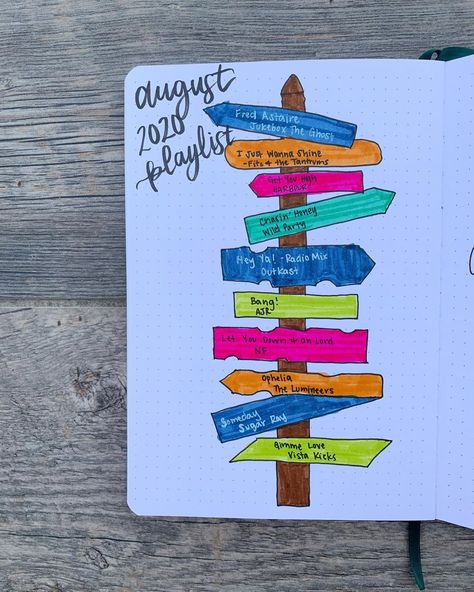 august
2020
playlist
Fred Astaire
Jukebox The Ghost
I Just Wanna Shine
-Fitz & the Tantrums
Get You High
HARBOUR
Chasin' Honey
Wild Party
Hey Ya! - Radio Mix
Outkast
Bang!
AJR
Let You Down & Oh Lord
NF
Ophelia
The Lumineers
Someday
Sugar Ray
Gimme Love
Vista Kicks